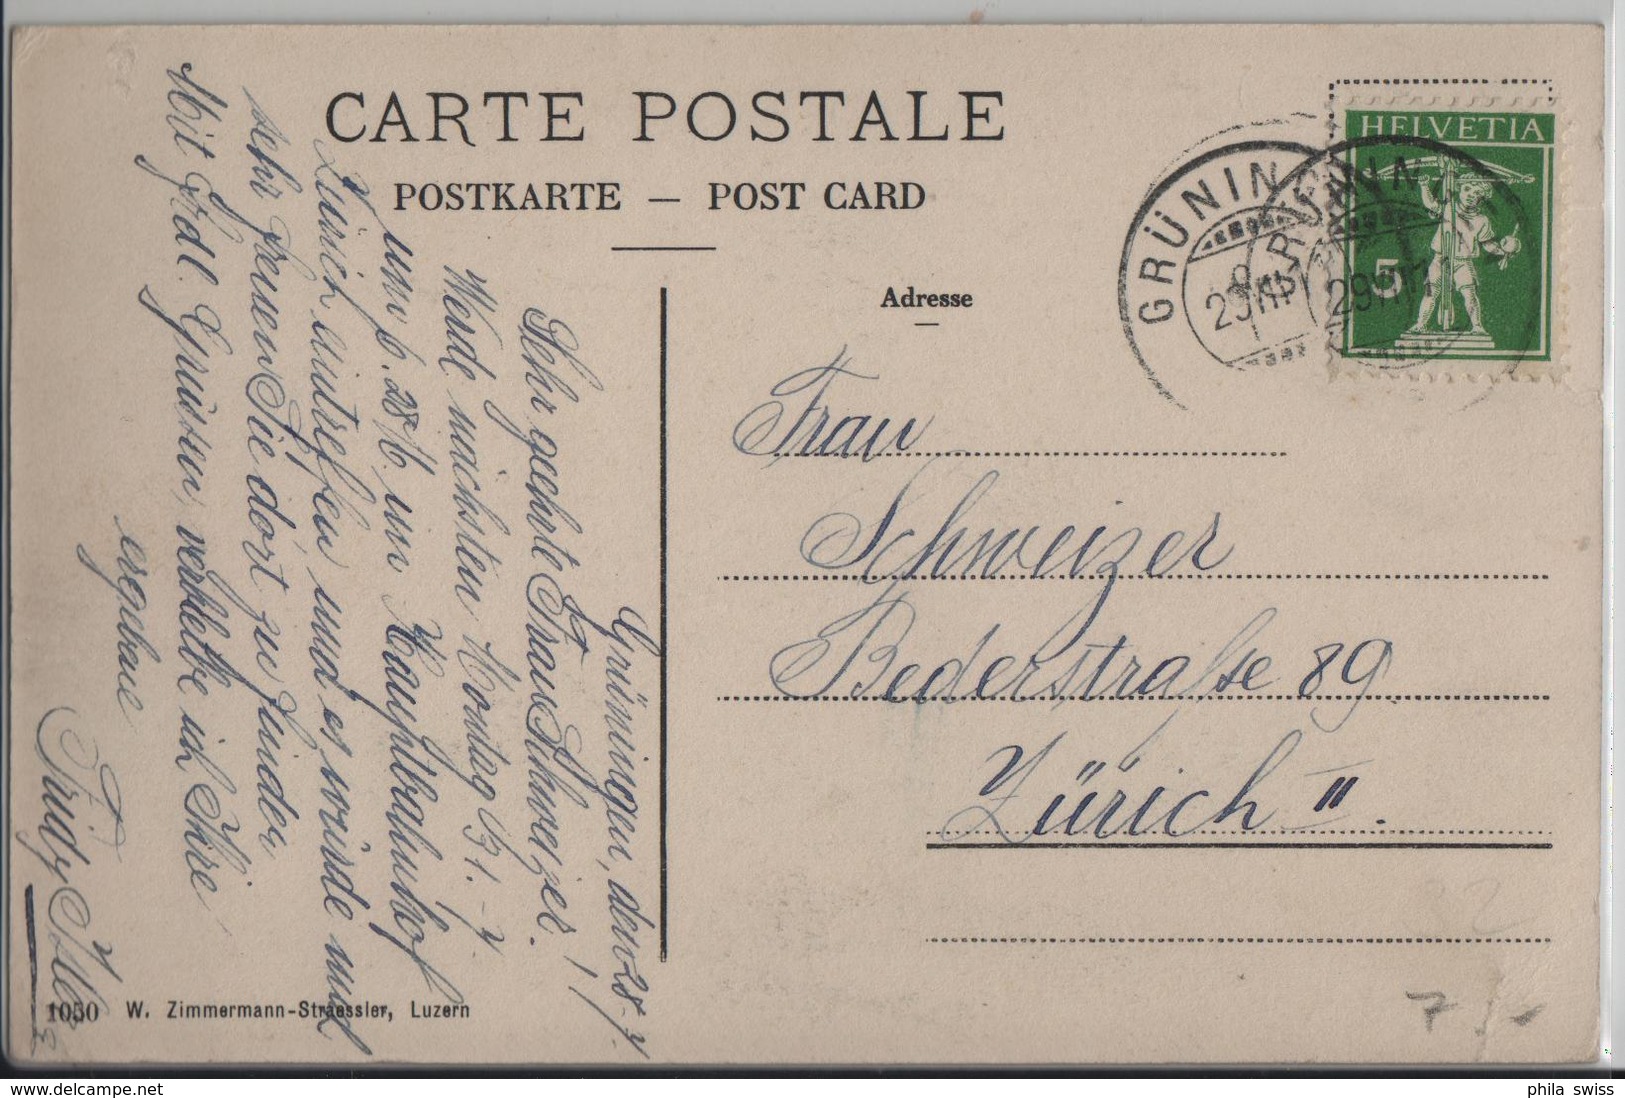 CARTE POSTALE
POSTKARTE — POST CARD
Adresse
HELVETIA
5
GRÜNINGEN
Frau
Schweizer
Bederstrasse 89
Zürich II.
Grüningen, den 28. 7.
Sehr geehrte Frau Schweizer!
Werde nächsten Montag 31. 7.
um 6.28 im Hauptbahnhof
Zürich eintreffen und es würde mich
sehr freuen Sie dort zu finden
Mit frdl. Grüssen, verbleibe ich Ihre
ergebene
Trudy
1050 W. Zimmermann-Straessler, Luzern
phila swiss